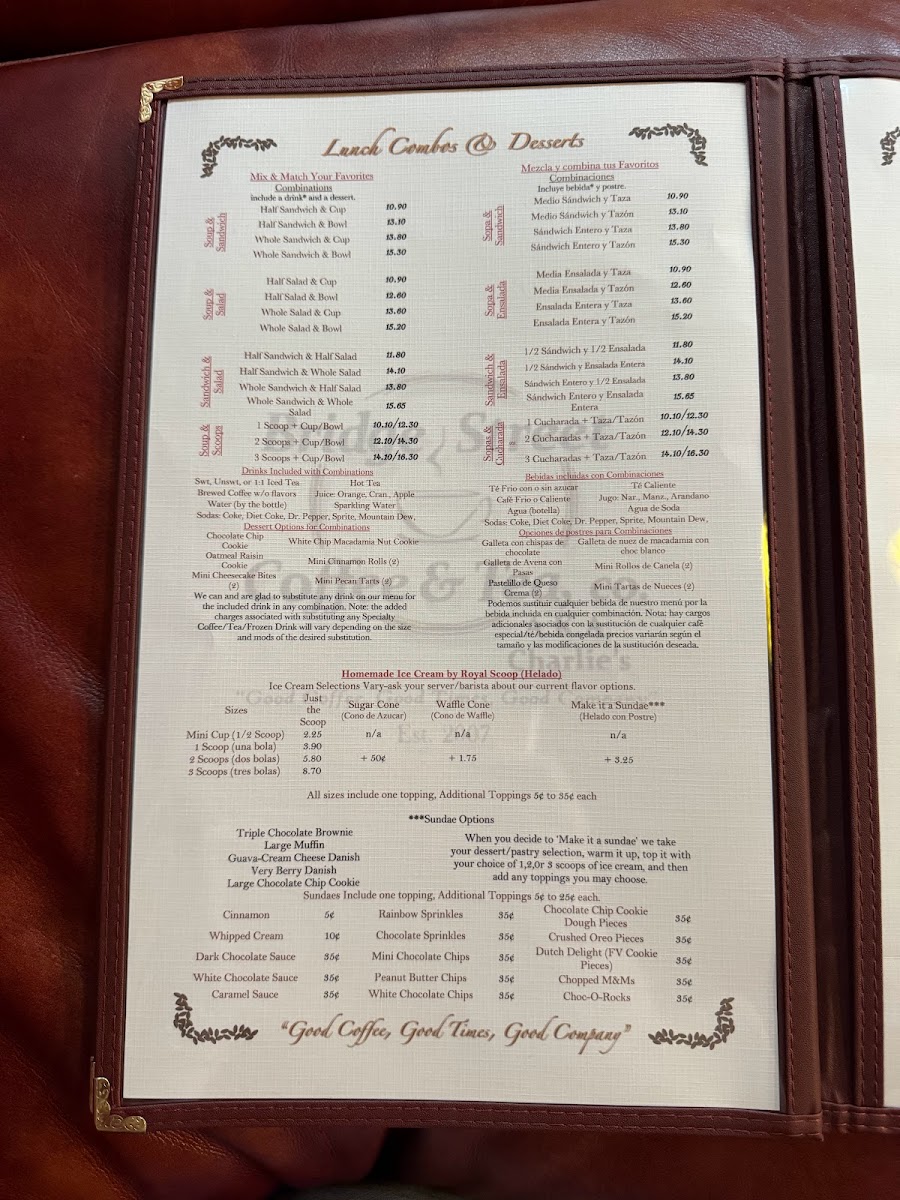 Lunch Combos @ Desserts
Mix & Match Your Favorites
Combinations
include a drink* and a dessert.
Soup & Sandwich
Half Sandwich & Cup 10.90
Half Sandwich & Bowl 13.10
Whole Sandwich & Cup 13.80
Whole Sandwich & Bowl 15.30
Soup & Salad
Half Salad & Cup 10.90
Half Salad & Bowl 12.60
Whole Salad & Cup 13.60
Whole Salad & Bowl 15.20
Sandwich & Salad
Half Sandwich & Half Salad 11.80
Half Sandwich & Whole Salad 14.10
Whole Sandwich & Half Salad 13.80
Whole Sandwich & Whole
Salad 15.65
Soup & Scoops
1 Scoop + Cup/Bowl 10.10/12.30
2 Scoops + Cup/Bowl 12.10/14.30
3 Scoops + Cup/Bowl 14.10/16.30
Drinks Included with Combinations
Swt, Unswt, or 1:1 Iced Tea Hot Tea
Brewed Coffee w/o flavors Juice: Orange, Cran., Apple
Water (by the bottle) Sparkling Water
Sodas: Coke, Diet Coke, Dr. Pepper, Sprite, Mountain Dew,
Dessert Options for Combinations
Chocolate Chip
Cookie White Chip Macadamia Nut Cookie
Oatmeal Raisin
Cookie Mini Cinnamon Rolls (2)
Mini Cheesecake Bites
(2) Mini Pecan Tarts (2)
We can and are glad to substitute any drink on our menu for
the included drink in any combination. Note: the added
charges associated with substituting any Specialty
Coffee/Tea/Frozen Drink will vary depending on the size
and mods of the desired substitution.
Mezcla y combina tus Favoritos
Combinaciones
Incluye bebida* y postre.
Sopa & Sandwich
Medio Sándwich y Taza 10.90
Medio Sándwich y Tazón 13.10
Sándwich Entero y Taza 13.80
Sándwich Entero y Tazón 15.30
Sopa & Ensalada
Media Ensalada y Taza 10.90
Media Ensalada y Tazón 12.60
Ensalada Entera y Taza 13.60
Ensalada Entera y Tazón 15.20
Sandwich & Ensalada
1/2 Sándwich y 1/2 Ensalada 11.80
1/2 Sándwich y Ensalada Entera 14.10
Sándwich Entero y 1/2 Ensalada 13.80
Sándwich Entero y Ensalada
Entera 15.65
Sopas & Cucharadas
1 Cucharada + Taza/Tazón 10.10/12.30
2 Cucharadas + Taza/Tazón 12.10/14.30
3 Cucharadas + Taza/Tazón 14.10/16.30
Bebidas incluidas con Combinaciones
Té Frio con o sin azucar Té Caliente
Café Frio o Caliente Jugo: Nar., Manz., Arandano
Agua (botella) Agua de Soda
Sodas: Coke, Diet Coke, Dr. Pepper, Sprite, Mountain Dew,
Opciones de postres para Combinaciones
Galleta con chispas de
chocolate Galleta de nuez de macadamia con
choc blanco
Galleta de Avena con
Pasas Mini Rollos de Canela (2)
Pastelillo de Queso
Crema (2) Mini Tartas de Nueces (2)
Podemos sustituir cualquier bebida de nuestro menú por la
bebida incluida en cualquier combinación. Nota: hay cargos
adicionales asociados con la sustitución de cualquier café
especial/té/bebida congelada precios variarán según el
tamaño y las modificaciones de la sustitución deseada.
Bridge Street
Coffee & Tea, Co.
Charlie's
"Good Coffee, Good Times, Good Company"
Est. 2007
Homemade Ice Cream by Royal Scoop (Helado)
Ice Cream Selections Vary-ask your server/barista about our current flavor options.
Sizes Just the Scoop Sugar Cone (Cono de Azucar) Waffle Cone (Cono de Waffle) Make it a Sundae*** (Helado con Postre)
Mini Cup (1/2 Scoop) 2.25 n/a n/a n/a
1 Scoop (una bola) 3.90
2 Scoops (dos bolas) 5.80 + 50¢ + 1.75 + 3.25
3 Scoops (tres bolas) 8.70
All sizes include one topping, Additional Toppings 5¢ to 35¢ each
***Sundae Options
Triple Chocolate Brownie
Large Muffin
Guava-Cream Cheese Danish
Very Berry Danish
Large Chocolate Chip Cookie
When you decide to 'Make it a sundae' we take
your dessert/pastry selection, warm it up, top it with
your choice of 1,2,0r 3 scoops of ice cream, and then
add any toppings you may choose.
Sundaes Include one topping, Additional Toppings 5¢ to 25¢ each.
Cinnamon 5¢ Rainbow Sprinkles 35¢ Chocolate Chip Cookie Dough Pieces 35¢
Whipped Cream 10¢ Chocolate Sprinkles 35¢ Crushed Oreo Pieces 35¢
Dark Chocolate Sauce 35¢ Mini Chocolate Chips 35¢ Dutch Delight (FV Cookie Pieces) 35¢
White Chocolate Sauce 35¢ Peanut Butter Chips 35¢ Chopped M&Ms 35¢
Caramel Sauce 35¢ White Chocolate Chips 35¢ Choc-O-Rocks 35¢
"Good Coffee, Good Times, Good Company"